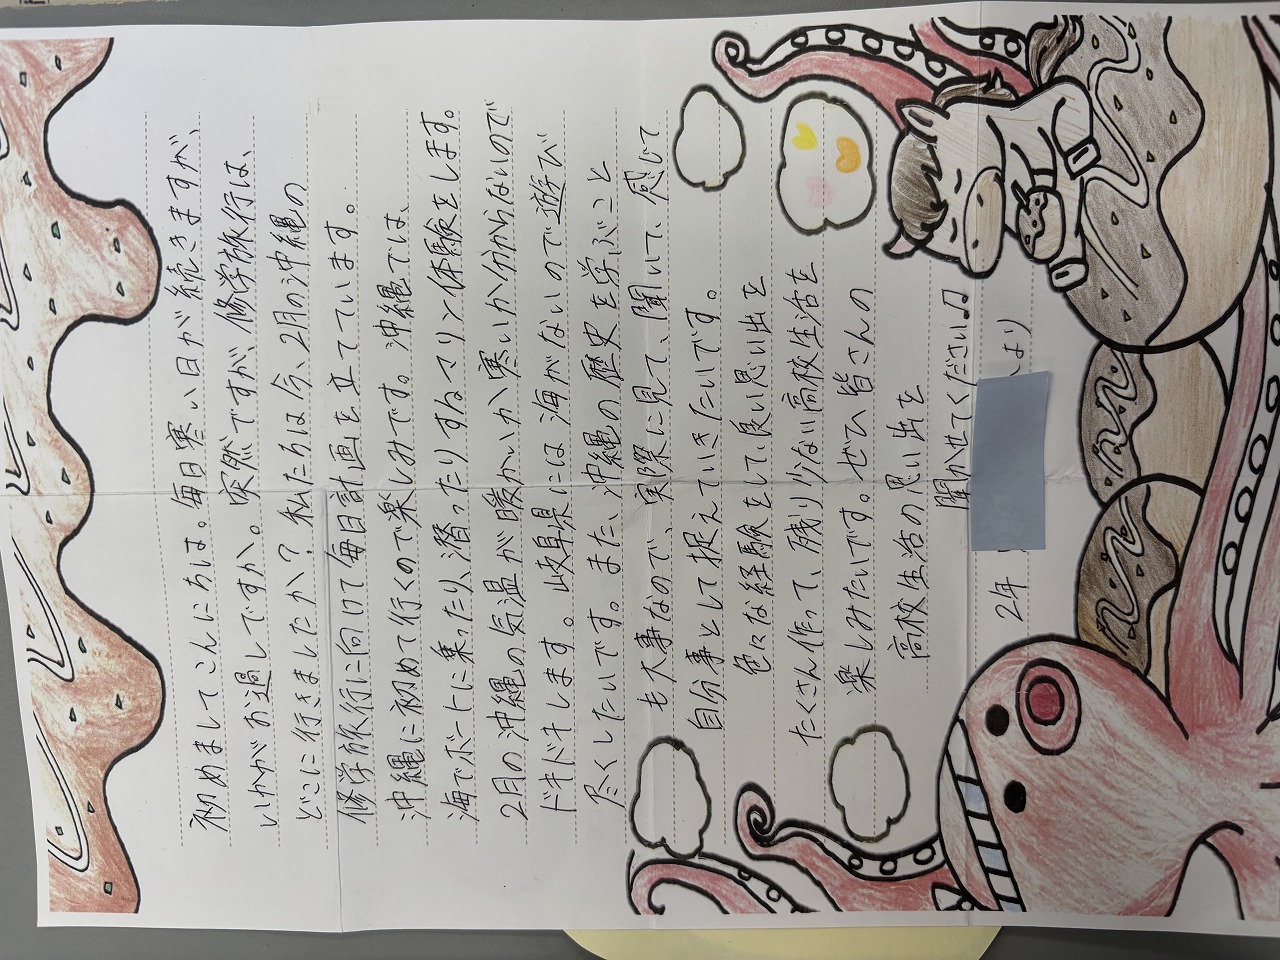 初めましてこんにちは。毎日寒い日が続きますが、
いかがお過しですか。突然ですが、修学旅行は、
どこに行きましたか？私たちは今、2月の沖縄の
修学旅行に向けて毎日計画を立てています。
沖縄に初めて行くので楽しみです。沖縄では、
海でボートに乗ったり、潜ったりするマリン体験をします。
2月の沖縄の気温が暖かいか寒いか分からないので
ドキドキします。岐阜県には海がないので遊び
尽くしたいです。また、沖縄の歴史を学ぶこと
も大事なので、実際に見て、聞いて、感じて
自分事として捉えていきたいです。
色々な経験をして、良い思い出を
たくさん作って、残り少ない高校生活を
楽しみたいです。ぜひ皆さんの
高校生活の思い出を
聞かせてください♫
2年 より